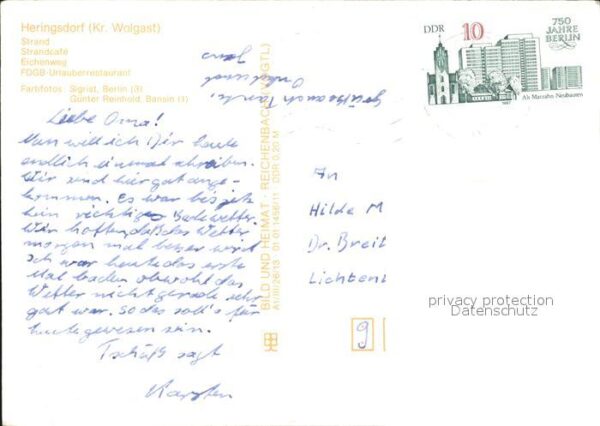 Heringsdorf (Kr. Wolgast)
Strand
Strandcafé
Eichenweg
FDGB-Urlauberrestaurant
Farbfotos: Sigrist, Berlin (3)
Günter Reinhold, Bansin (1)
Liebe Oma!
Nun will ich Dir heute
endlich einmal schreiben.
Wir sind hier gut ange-
kommen. Es war bis jetzt
kein richtiges Badewetter.
Wir hoffen, daß das Wetter
morgen mal besser wird
Ich war heute das erste
Mal baden obwohl das
Wetter nicht gerade sehr
gut war. So das soll's für
heute gewesen sein.
Tschüß sagt
Karsten
Tante
Onkel und
BILD UND HEIMAT · REICHENBACH (VOGTL)
A1/III/26/13 01 01 1456/11 · DDR 0,20 M
DDR 10
750
JAHRE
BERLIN
Alt Marzahn Neubauten
1987
An
Hilde M
Dr. Breit
Lichten
9
privacy protection
Datenschutz